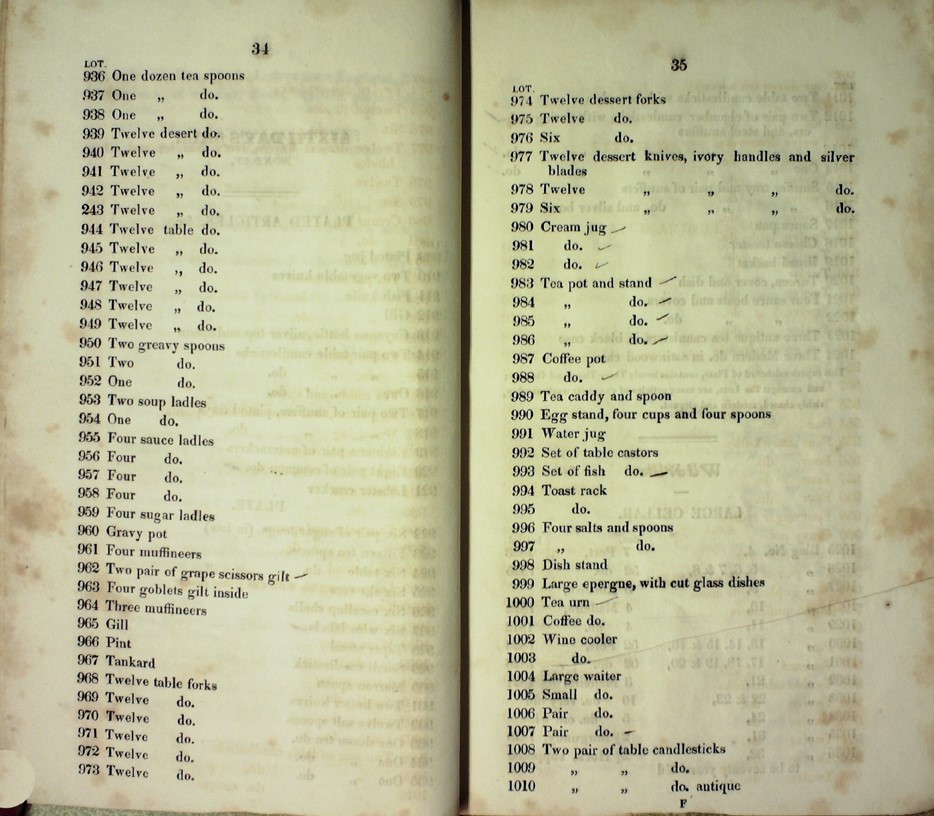 34
LOT.
936 One dozen tea spoons
937 One „ do.
938 One „ do.
939 Twelve desert do.
940 Twelve „ do.
941 Twelve „ do.
942 Twelve „ do.
243 Twelve „ do.
944 Twelve table do.
945 Twelve „ do.
946 Twelve „ do.
947 Twelve „ do.
948 Twelve „ do.
949 Twelve „ do.
950 Two greavy spoons
951 Two do.
952 One do.
953 Two soup ladles
954 One do.
955 Four sauce ladles
956 Four do.
957 Four do.
958 Four do.
959 Four sugar ladles
960 Gravy pot
961 Four muffineers
962 Two pair of grape scissors gilt
963 Four goblets gilt inside
964 Three muffineers
965 Gill
966 Pint
967 Tankard
968 Twelve table forks
969 Twelve do.
970 Twelve do.
971 Twelve do.
972 Twelve do.
973 Twelve do.
35
LOT.
974 Twelve dessert forks
975 Twelve do.
976 Six do.
977 Twelve dessert knives, ivory handles and silver
blades
978 Twelve „ „ „ do.
979 Six „ „ „ do.
980 Cream jug
981 do.
982 do.
983 Tea pot and stand
984 „ do.
985 „ do.
986 „ do.
987 Coffee pot
988 do.
989 Tea caddy and spoon
990 Egg stand, four cups and four spoons
991 Water jug
992 Set of table castors
993 Set of fish do.
994 Toast rack
995 do.
996 Four salts and spoons
997 „ do.
998 Dish stand
999 Large epergne, with cut glass dishes
1000 Tea urn
1001 Coffee do.
1002 Wine cooler
1003 do.
1004 Large waiter
1005 Small do.
1006 Pair do.
1007 Pair do.
1008 Two pair of table candlesticks
1009 „ „ do.
1010 „ „ do. antique
F